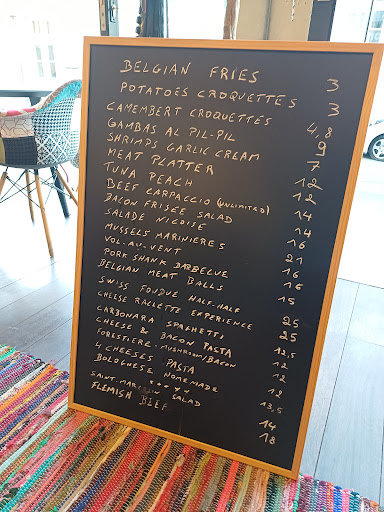 BELGIAN FRIES 3
POTATOES CROQUETTES 3
CAMEMBERT CROQUETTES 4,8
GAMBAS AL PIL-PIL 9
SHRIMPS GARLIC CREAM 7
MEAT PLATTER 12
TUNA PEACH 12
BEEF CARPACCIO (UNLIMITED) 14
BACON FRISÉE SALAD 14
SALADE NICOISE 16
MUSSELS MARINIÈRES 21
VOL-AU-VENT 16
PORK SHANK BARBECUE 15
BELGIAN MEAT BALLS 15
SWISS FONDUE HALF-HALF 25
CHEESE RACLETTE EXPERIENCE 25
CARBONARA SPAGHETTI 12,5
CHEESE & BACON PASTA 12
FORESTIERE-MUSHROOM/BACON 12
4 CHEESES PASTA 12
BOLOGNESE HOMEMADE 13,5
SAINT-MARCELIN SALAD 14
FLEMISH BEEF 18